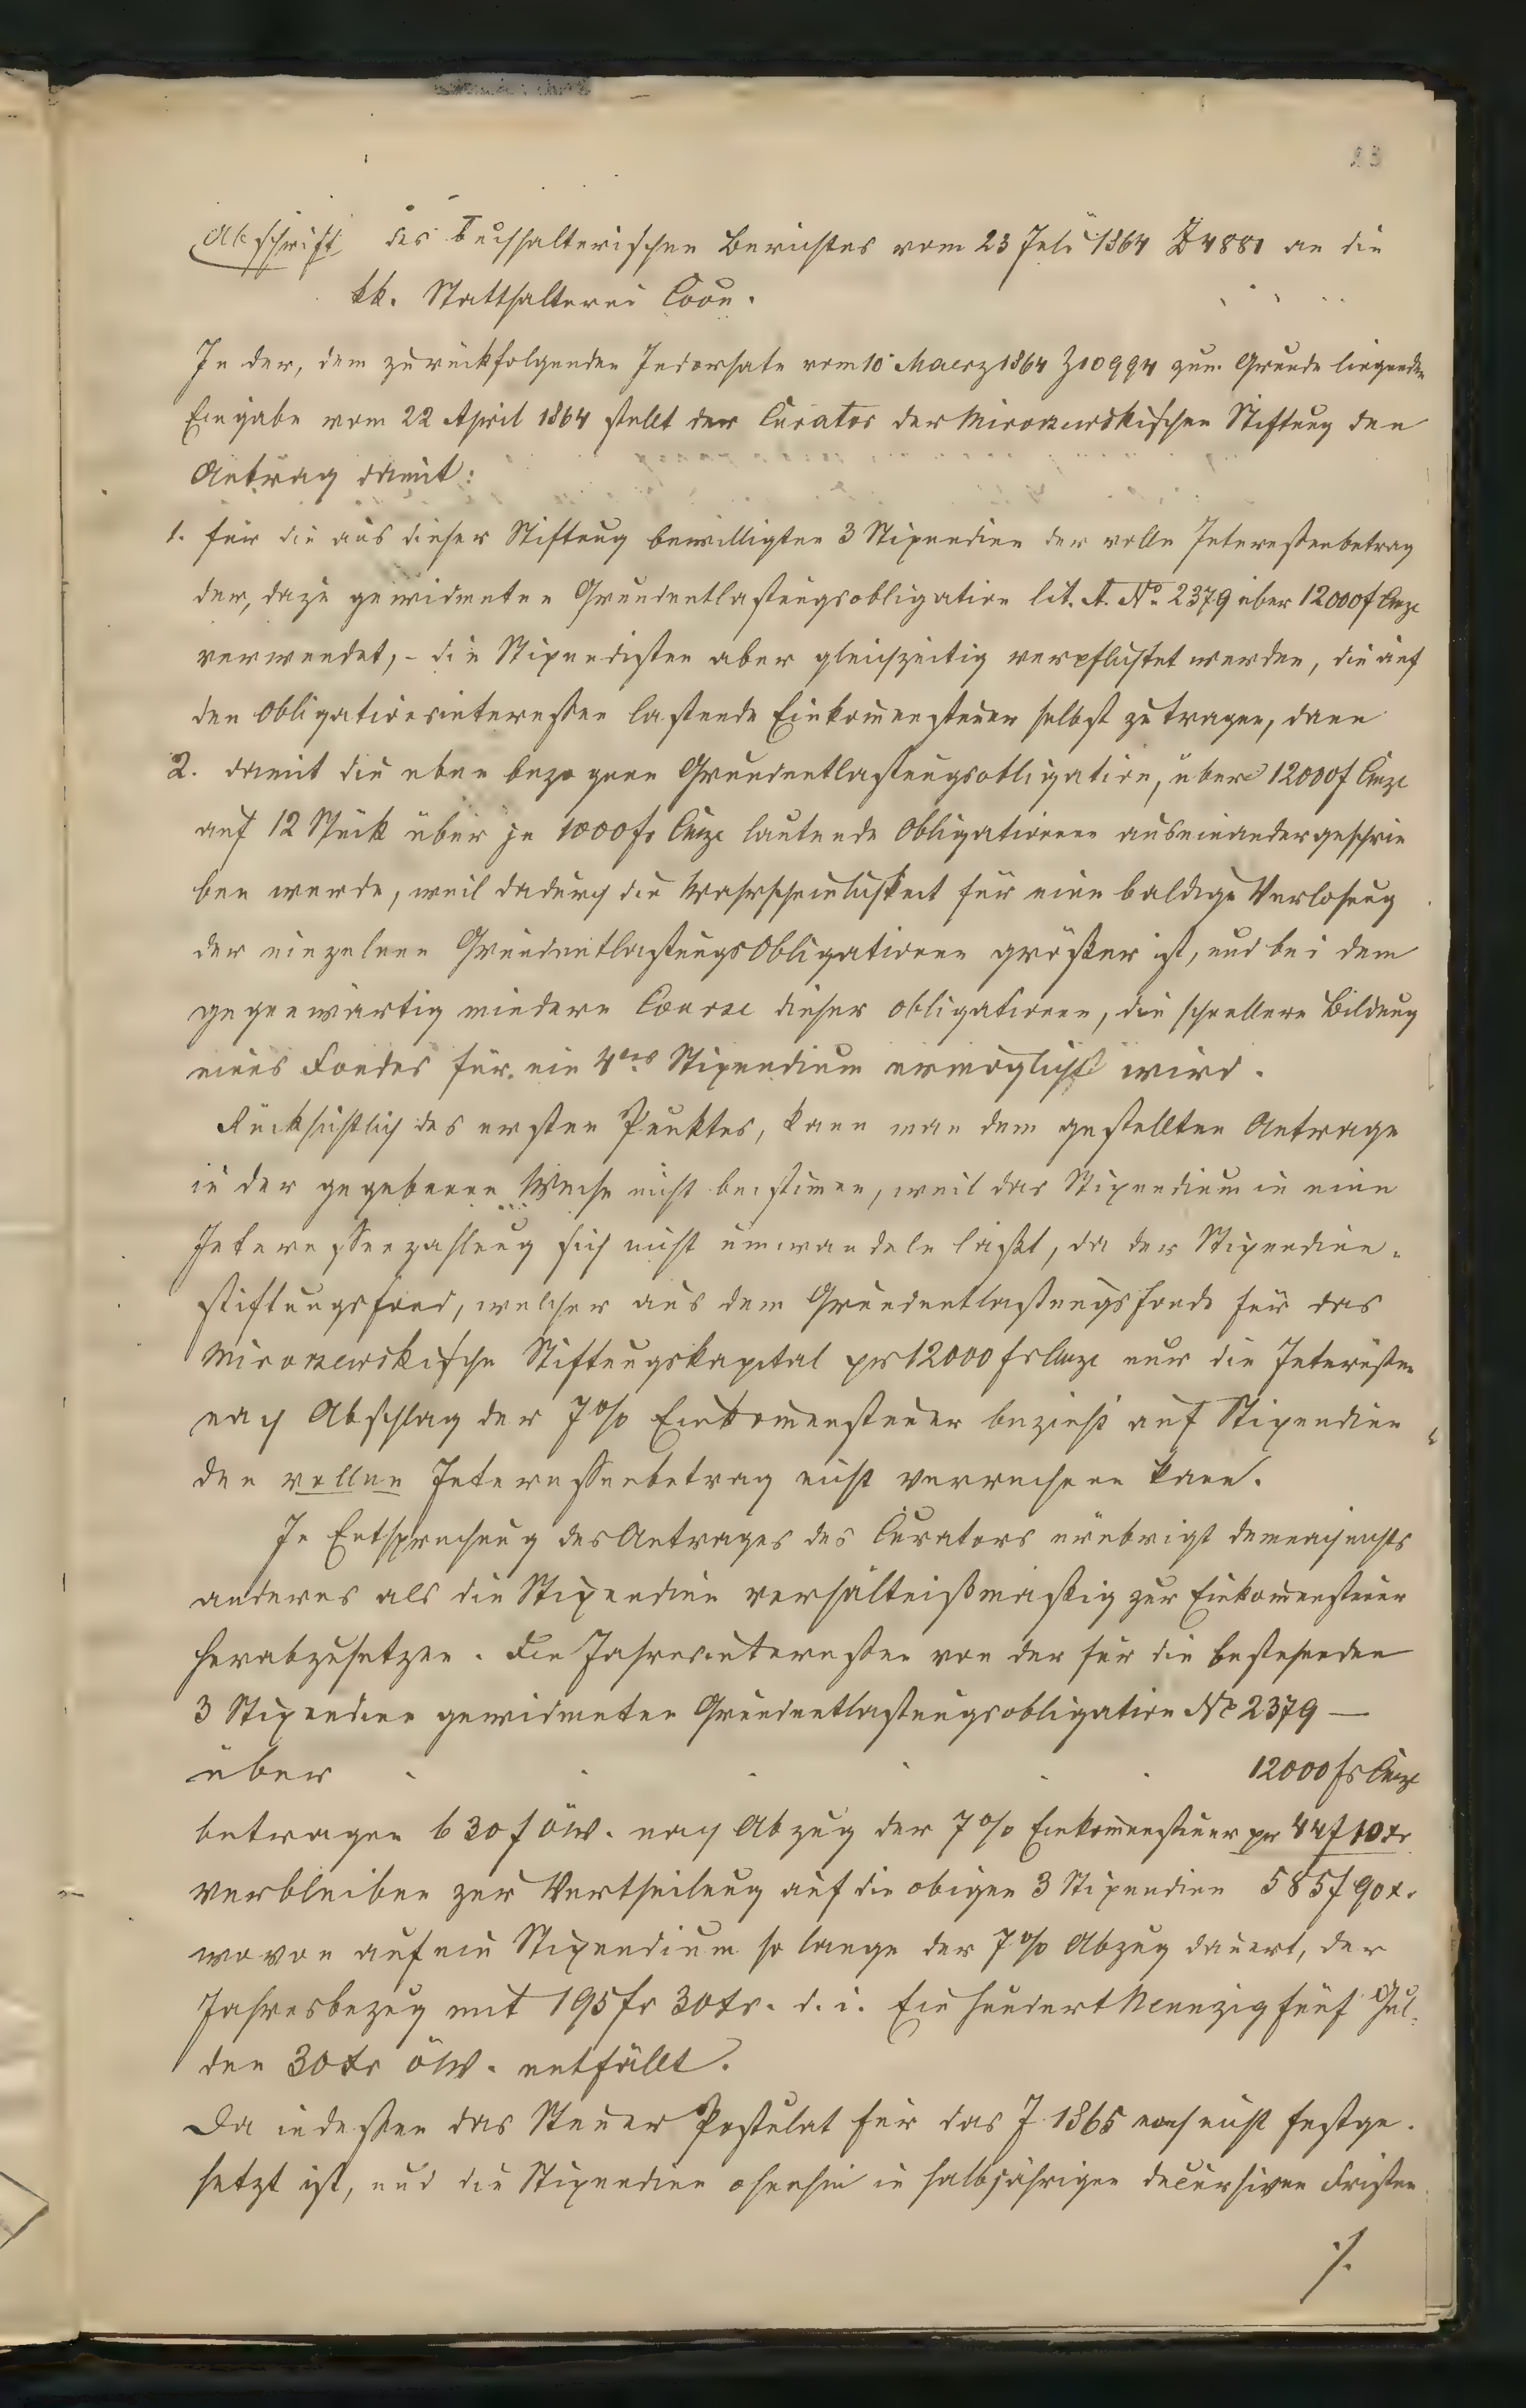 23
Abschrift des buchhalterischen Berichtes vom 23 Juli 1864 Z 4881 an die
kk. Statthalterei Coon.
In der, dem zurückfolgenden Indorsate vom 10 Maerz 1864 Z 10994 zum Grunde liegenden
Eingabe vom 22 April 1864 stellt der Curator der Miroszewskischen Stiftung den
Antrag damit:
1. für die aus dieser Stiftung bewilligten 3 Stipendien der volle Interessenbetrag
der, dazu gewidmeten Grundentlastungsobligation lit. A. No 2379 über 12000 f CMze
verwendet, - die Stipendisten aber gleichzeitig verpflichtet werden, die auf
den Obligationsinteressen lastende Einkomensteuer selbst zu tragen, dann
2. damit die eben bezogene Grundentlastungsobligation, über 12000 f CMze
auf 12 Stück über je 1000 fr CMze lautende Obligationen auseinandergeschrie
ben werde, weil dadurch die Wahrscheinlichkeit für eine baldige Verlosung
der einzelnen GrundentlastungsObligationen größer ist, und bei dem
gegenwärtig niedern Course dieser Obligationen, die schnellere Bildung
eines Fondes für ein 4tes Stipendium ermöglicht wird.
Rücksichtlich des ersten Punktes, kann man dem gestellten Antrage
in der gegebenen Weise nicht beistimen, weil das Stipendium in eine
Interessenzahlung sich nicht umwandeln läßt, da der Stipendien-
stiftungsfond, welcher aus dem Grundentlastungsfonde für das
Miroszewskische Stiftungskapital pr 12000 fr CMze nur die Interessen
nach Abschlag der 7% Einkomensteuer bezieht auf Stipendien
den vollen Interessenbetrag nicht verrechnen kann.
In Entsprechung des Antrages des Curators erübrigt demnach nichts
anderes als die Stipendien verhältnißmäßig zur Einkomensteuer
herabzusetzen. Die Jahresinteressen von der für die bestehenden
3 Stipendien gewidmeten Grundentlastungsobligation No 2379 —
über . . . . . 12000 fr CMze
betragen 630 f öW. nach Abzug der 7% Einkomensteuer pr 44 f 10 xr
verbleiben zur Vertheilung auf die obigen 3 Stipendien 585 f 90 x.
wovon auf ein Stipendium so lange der 7% Abzug dauert, der
Jahresbezug mit 195 fr 30 xr. d. i. Ein hundert Neunzig fünf Gul-
den 30 xr öW. entfällt.
Da indessen das Steuer Postulat für das J 1865 noch nicht festge-
setzt ist, und die Stipendien ohnehin in halbjährigen decursiven Fristen
./.